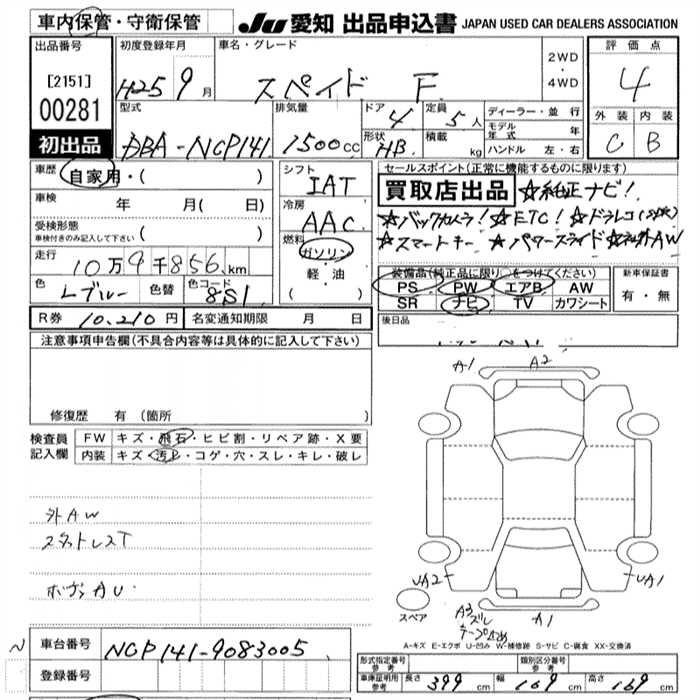 車内保管・守衛保管
JU 愛知 出品申込書 JAPAN USED CAR DEALERS ASSOCIATION
出品番号 初度登録年月 車名・グレード 評価点
[2151] H25 9月 スペイド F 2WD・4WD 4
00281 型式 排気量 ドア 4 定員 5人 ディーラー・並行 外装 内装
初出品 DBA-NCP141 1500cc 形状 HB 積載 kg モデル年式 年 C B
ハンドル 左・右
車歴 自家用・( ) シフト IAT セールスポイント(正常に機能するものに限ります)
車検 年 月( 日) 冷房 AAC 買取店出品 ☆純正ナビ!
受検形態 車検付きのみ記入して下さい ( ) ☆バックカメラ!☆ETC!☆ドラレコ
燃料 ガソリン・軽・油 ( ) ☆スマートキー ☆パワースライド ☆社外AW
走行 10万9千856km
色 Lブルー 色替 色コード 8S1
装備品(純正品に限り○をつけてください) 新車保証書
PS PW エアB AW 有・無
SR ナビ TV カワシート
R券 10,210円 名変通知期限 月 日 後日品
注意事項申告欄(不具合内容等は具体的に記入して下さい)
A1 A2
修復歴 有(箇所
検査員記入欄 FW キズ・飛石・ヒビ割・リペア跡・X要
内装 キズ・汚レ・コゲ・穴・スレ・キレ・破レ
外AW
スタットレスT
ボデーAU
UA2 UA1
スペア A3 ズレ テープ止め A1
A-キズ E-エクボ U-凹み W-補修跡 S-サビ C-腐食 XX-交換済
N 車台番号 NCP141-9083005
登録番号
形式指定番号 参考 類別区分番号 参考
車庫証明用 参考 長さ 399cm 幅 169cm 高さ 169cm